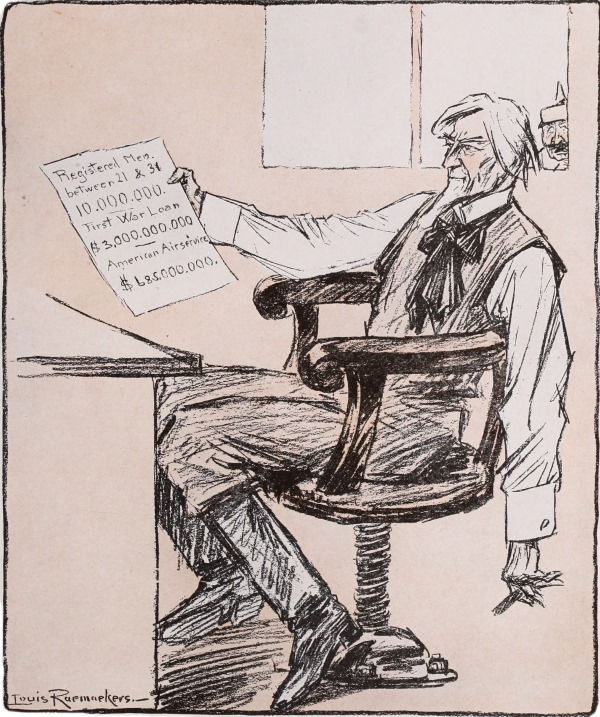 Registered Men.
between 21 & 31
10.000.000.
First War Loan
$ 3.000.000.000
American Airservice
$ 685.000.000.
Louis Raemaekers.